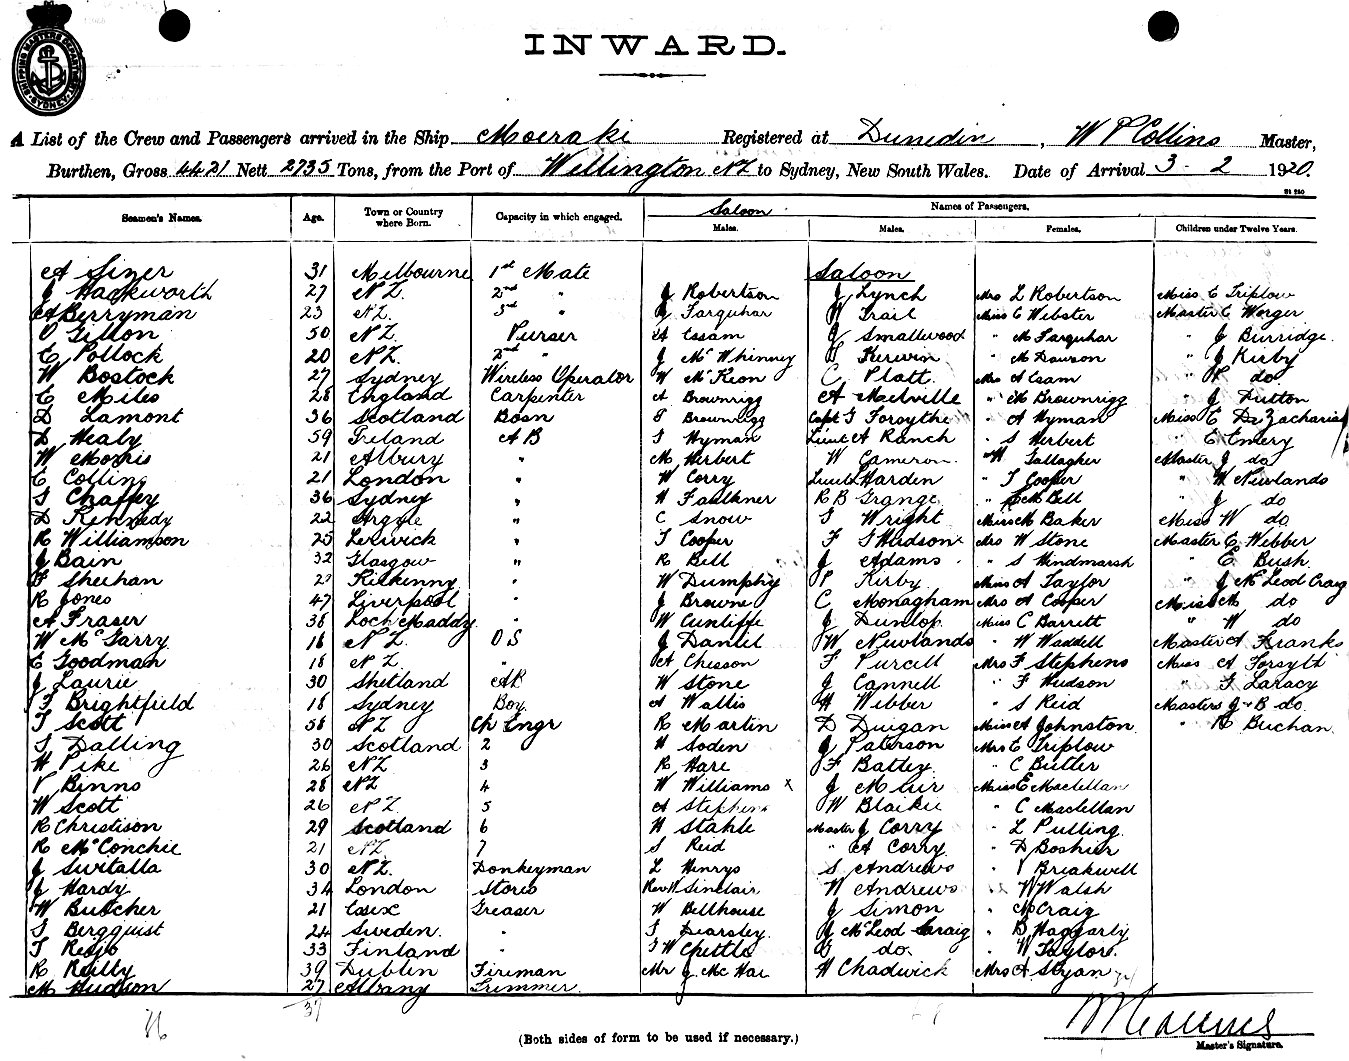 SHIPPING MASTERS DEPARTMENT SYDNEY
INWARD.
A List of the Crew and Passengers arrived in the Ship Moeraki Registered at Dunedin, W P Collins Master,
Burthen, Gross 4421 Nett 2735 Tons, from the Port of Wellington NZ to Sydney, New South Wales. Date of Arrival 3 - 2 1920.
Seamen's Names. Age. Town or Country where Born. Capacity in which engaged. Saloon Names of Passengers.
Males. Males. Females. Children under Twelve Years.
A Sizer 31 Melbourne 1st Mate Saloon
J Hackworth 27 NZ. 2nd " J Robertson J Lynch Mrs L Robertson Miss E Triplow
A Berryman 23 NZ. 3rd " Farquhar W Trail Miss E Webster Master C Worger
O Gillon 50 NZ. Purser A Essam J Smallwood " M Farquhar " J Burridge
C Pollock 20 NZ. 2nd " J McWhinney Kerwin " M Dawson " J Kirby
W Bostock 27 Sydney Wireless Operator W McKeon C Platt. Mrs A Esam " P do
C Miles 28 England Carpenter A Brownrigg A Melville " M Brownrigg " J Dutton
D Lamont 36 Scotland Bosn Brownrigg Capt G Forsythe " A Hyman Miss E De Zacharia
D Healy 59 Ireland A B S Hyman Lieut A Ranch " S Herbert " E Emery
W Morris 21 Albury " M Herbert W Cameron " H Gallagher Master J do
E Collins 21 London " W Corry Lieut L Harden " T Cooper " W Newlands
S Chaffey 36 Sydney " H Faulkner R B Grange " M Bell " J do
D Kennedy 22 Argyle " C Snow S Wright Miss M Baker Miss W do
R Williamson 25 Lerwick " T Cooper F S Hudson Mrs W Stone Master C Webber
J Bain 32 Glasgow " R Bell J Adams " S Hindmarsh " E Bush
F Sheehan 27 Kilkenny " W Dumphy P Kirby Miss A Taylor " J McLeod Craig
R Jones 47 Liverpool " J Browne C Monagham Mrs A Cooper Miss M do
A Fraser 38 Loch Maddy " W Cunliffe J Dunlop Miss C Barrett " W do
W McGarry 18 NZ. O S J Daniel W Newlands " W Waddell Master A Franks
C Goodman 18 NZ. " A Chisson F Purcell Mrs F Stephens Miss A Forsyth
J Laurie 30 Shetland AB W Stone J Cannell " F Hudson " F Laracy
F Brightfield 18 Sydney Boy. A Wallis H Webber " S Reid Masters J & B do.
T Scott 58 NZ Ch Engr R Martin D Duigan Miss A Johnston " R Buchan
S Dalling 30 Scotland 2 H Soden J Paterson Mrs E Triplow
H Pike 26 NZ 3 R Hare F Battey " C Butler
V Binns 28 NZ 4 W Williams x J Muir Miss E Maclellan
W Scott 26 NZ 5 A Stephens W Blaikie " C Maclellan
R Christison 29 Scotland 6 H Stahle Master J Corry " L Pulling
R McConchie 21 NZ 7 S Reid " A Corry " D Boshier
J Switalla 30 NZ. Donkeyman L Henrys S Andrews " V Breakwell
J Hardy 34 London Stores Rev W Sinclair W Andrews " W Walsh
W Butcher 21 Essex Greaser W Bellhouse J Simon " M Craig
S Bergquist 24 Sweden. " Dearsley J McLeod Craig " B Haggarty
T Reijo 33 Finland " W Chettle G do. " W Taylor
R Reilly 39 Dublin Fireman Mr J McHai W Chadwick Mrs A Ryan
M Hudson 27 Albany Trimmer.
37
(Both sides of form to be used if necessary.)
Master's Signature.